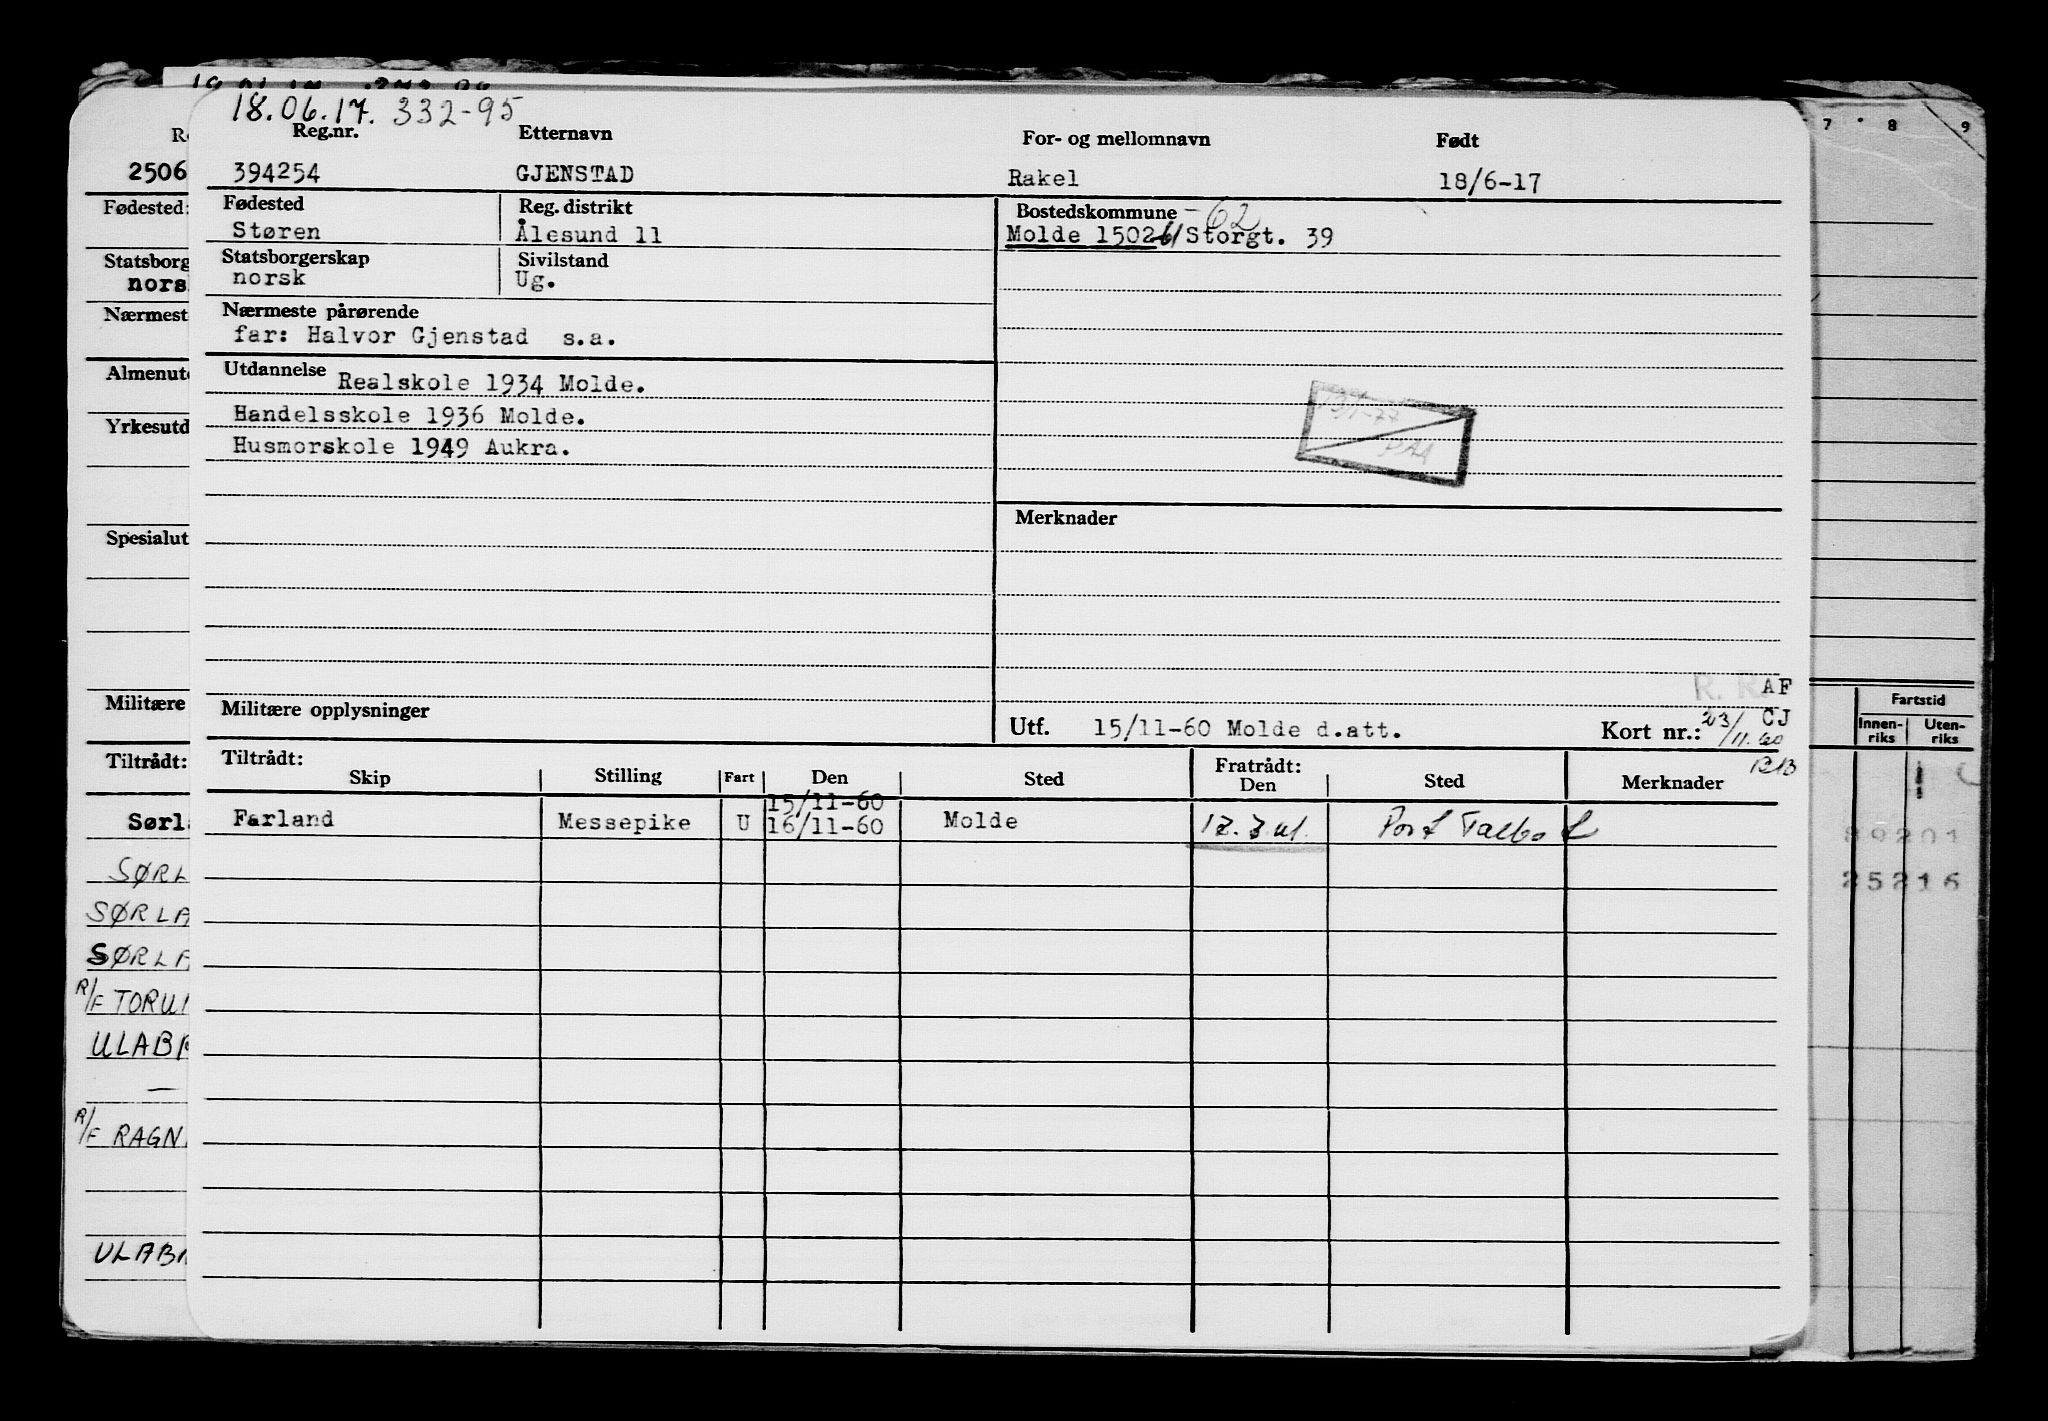 18.06.17. 332-95
Reg.nr. Etternavn For- og mellomnavn Født
394254 GJENSTAD Rakel 18/6-17
Fødested Reg. distrikt Bostedskommune -62
Støren Ålesund 11 Molde 1502-61 Storgt. 39
Statsborgerskap Sivilstand
norsk Ug.
Nærmeste pårørende
far: Halvor Gjenstad s.a.
Utdannelse Realskole 1934 Molde.
Handelsskole 1936 Molde.
Husmorskole 1949 Aukra.
Merknader
Militære opplysninger
AF
Utf. 15/11-60 Molde d.att. Kort nr.: 23/11.60 CJ
Tiltrådt: Fratrådt:
Skip Stilling Fart Den Sted Den Sted Merknader
15/11-60
Farland Messepike U 16/11-60 Molde Port Talbot
2506
Fødested:
Statsborg
nors
Nærmest
Almenut
Yrkesutd
Spesialut
Militære
Tiltrådt:
Sørl
SØRL
SØRLA
SØRLA
R/F TORU
ULAB
R/F RAGN
ULAB
7 8 9
Fartstid
Innen-riks Uten-riks
25216